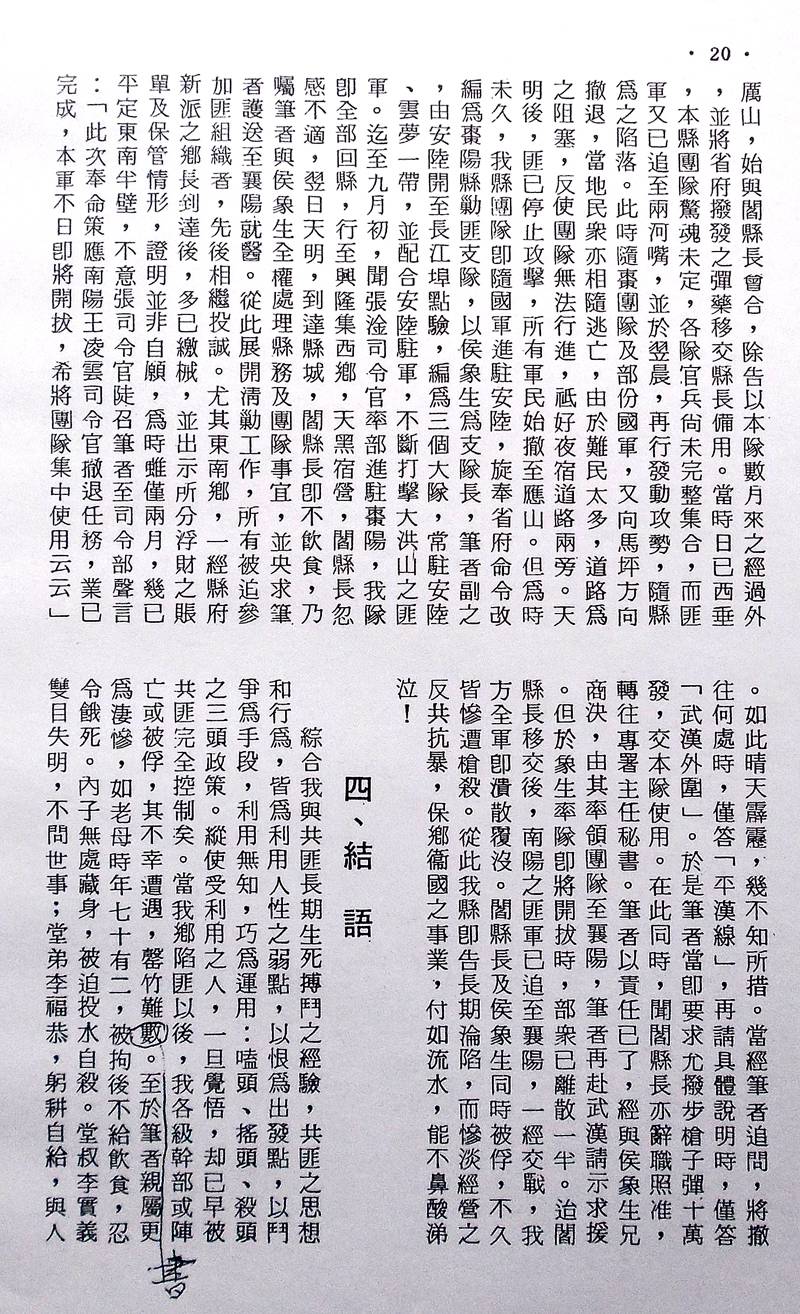 · 20 ·
厲山，始與閻縣長曾合，除告以本隊數月來之經過外
，並將省府撥發之彈藥移交縣長備用。當時日已西垂
，本縣團隊驚魂未定，各隊官兵尙未完整集合，而匪
軍又已追至兩河嘴，並於翌晨，再行發動攻勢，隨縣
爲之陷落。此時隨棗團隊及部份國軍，又向馬坪方向
撤退，當地民衆亦相隨逃亡，由於難民太多，道路爲
之阻塞，反使團隊無法行進，祗好夜宿道路兩旁。天
明後，匪已停止攻擊，所有軍民始撤至應山。但爲時
未久，我縣團隊卽隨國軍進駐安陸，旋奉省府命令改
編爲棗陽縣勦匪支隊，以侯象生爲支隊長，筆者副之
，由安陸開至長江埠點驗，編爲三個大隊，常駐安陸
、雲夢一帶，並配合安陸駐軍，不斷打擊大洪山之匪
軍。迄至九月初，聞張淦司令官率部進駐棗陽，我隊
卽全部回縣，行至興隆集西鄉，天黑宿營，閻縣長忽
感不適，翌日天明，到達縣城，閻縣長卽不飲食，乃
囑筆者與侯象生全權處理縣務及團隊事宜，並央求筆
者護送至襄陽就醫。從此展開淸勦工作，所有被迫參
加匪組織者，先後相繼投誠。尤其東南鄉，一經縣府
新派之鄉長到達後，多已繳械，並出示所分浮財之賬
單及保管情形，證明並非自願，爲時雖僅兩月，幾已
平定東南半壁，不意張司令官陡召筆者至司令部聲言
：「此次奉命策應南陽王凌雲司令官撤退任務，業已
完成，本軍不日卽將開拔，希將團隊集中使用云云」
。如此晴天霹靂，幾不知所措。當經筆者追問，將撤
往何處時，僅答「平漢線」，再請具體說明時，僅答
「武漢外圍」。於是筆者當卽要求允撥步槍子彈十萬
發，交本隊使用。在此同時，聞閻縣長亦辭職照准，
轉往專署主任秘書。筆者以責任已了，經與侯象生兄
商決，由其率領團隊至襄陽，筆者再赴武漢請示求援
。但於象生率隊卽將開拔時，部衆已離散一半。迨閻
縣長移交後，南陽之匪軍已追至襄陽，一經交戰，我
方全軍卽潰散覆沒。閻縣長及侯象生同時被俘，不久
皆慘遭槍殺。從此我縣卽告長期淪陷，而慘淡經營之
反共抗暴，保鄉衞國之事業，付如流水，能不鼻酸涕
泣！
四、結　語
綜合我與共匪長期生死搏鬥之經驗，共匪之思想
和行爲，皆爲利用人性之弱點，以恨爲出發點，以鬥
爭爲手段，利用無知，巧爲運用：嗑頭、搖頭、殺頭
之三頭政策。縱使受利用之人，一旦覺悟，却已早被
共匪完全控制矣。當我鄉陷匪以後，我各級幹部或陣
亡或被俘，其不幸遭遇，罄竹難數。至於筆者親屬更
書
爲淒慘，如老母時年七十有二，被拘後不給飲食，忍
令餓死。內子無處藏身，被迫投水自殺。堂叔李實義
雙目失明，不問世事；堂弟李福恭，躬耕自給，與人